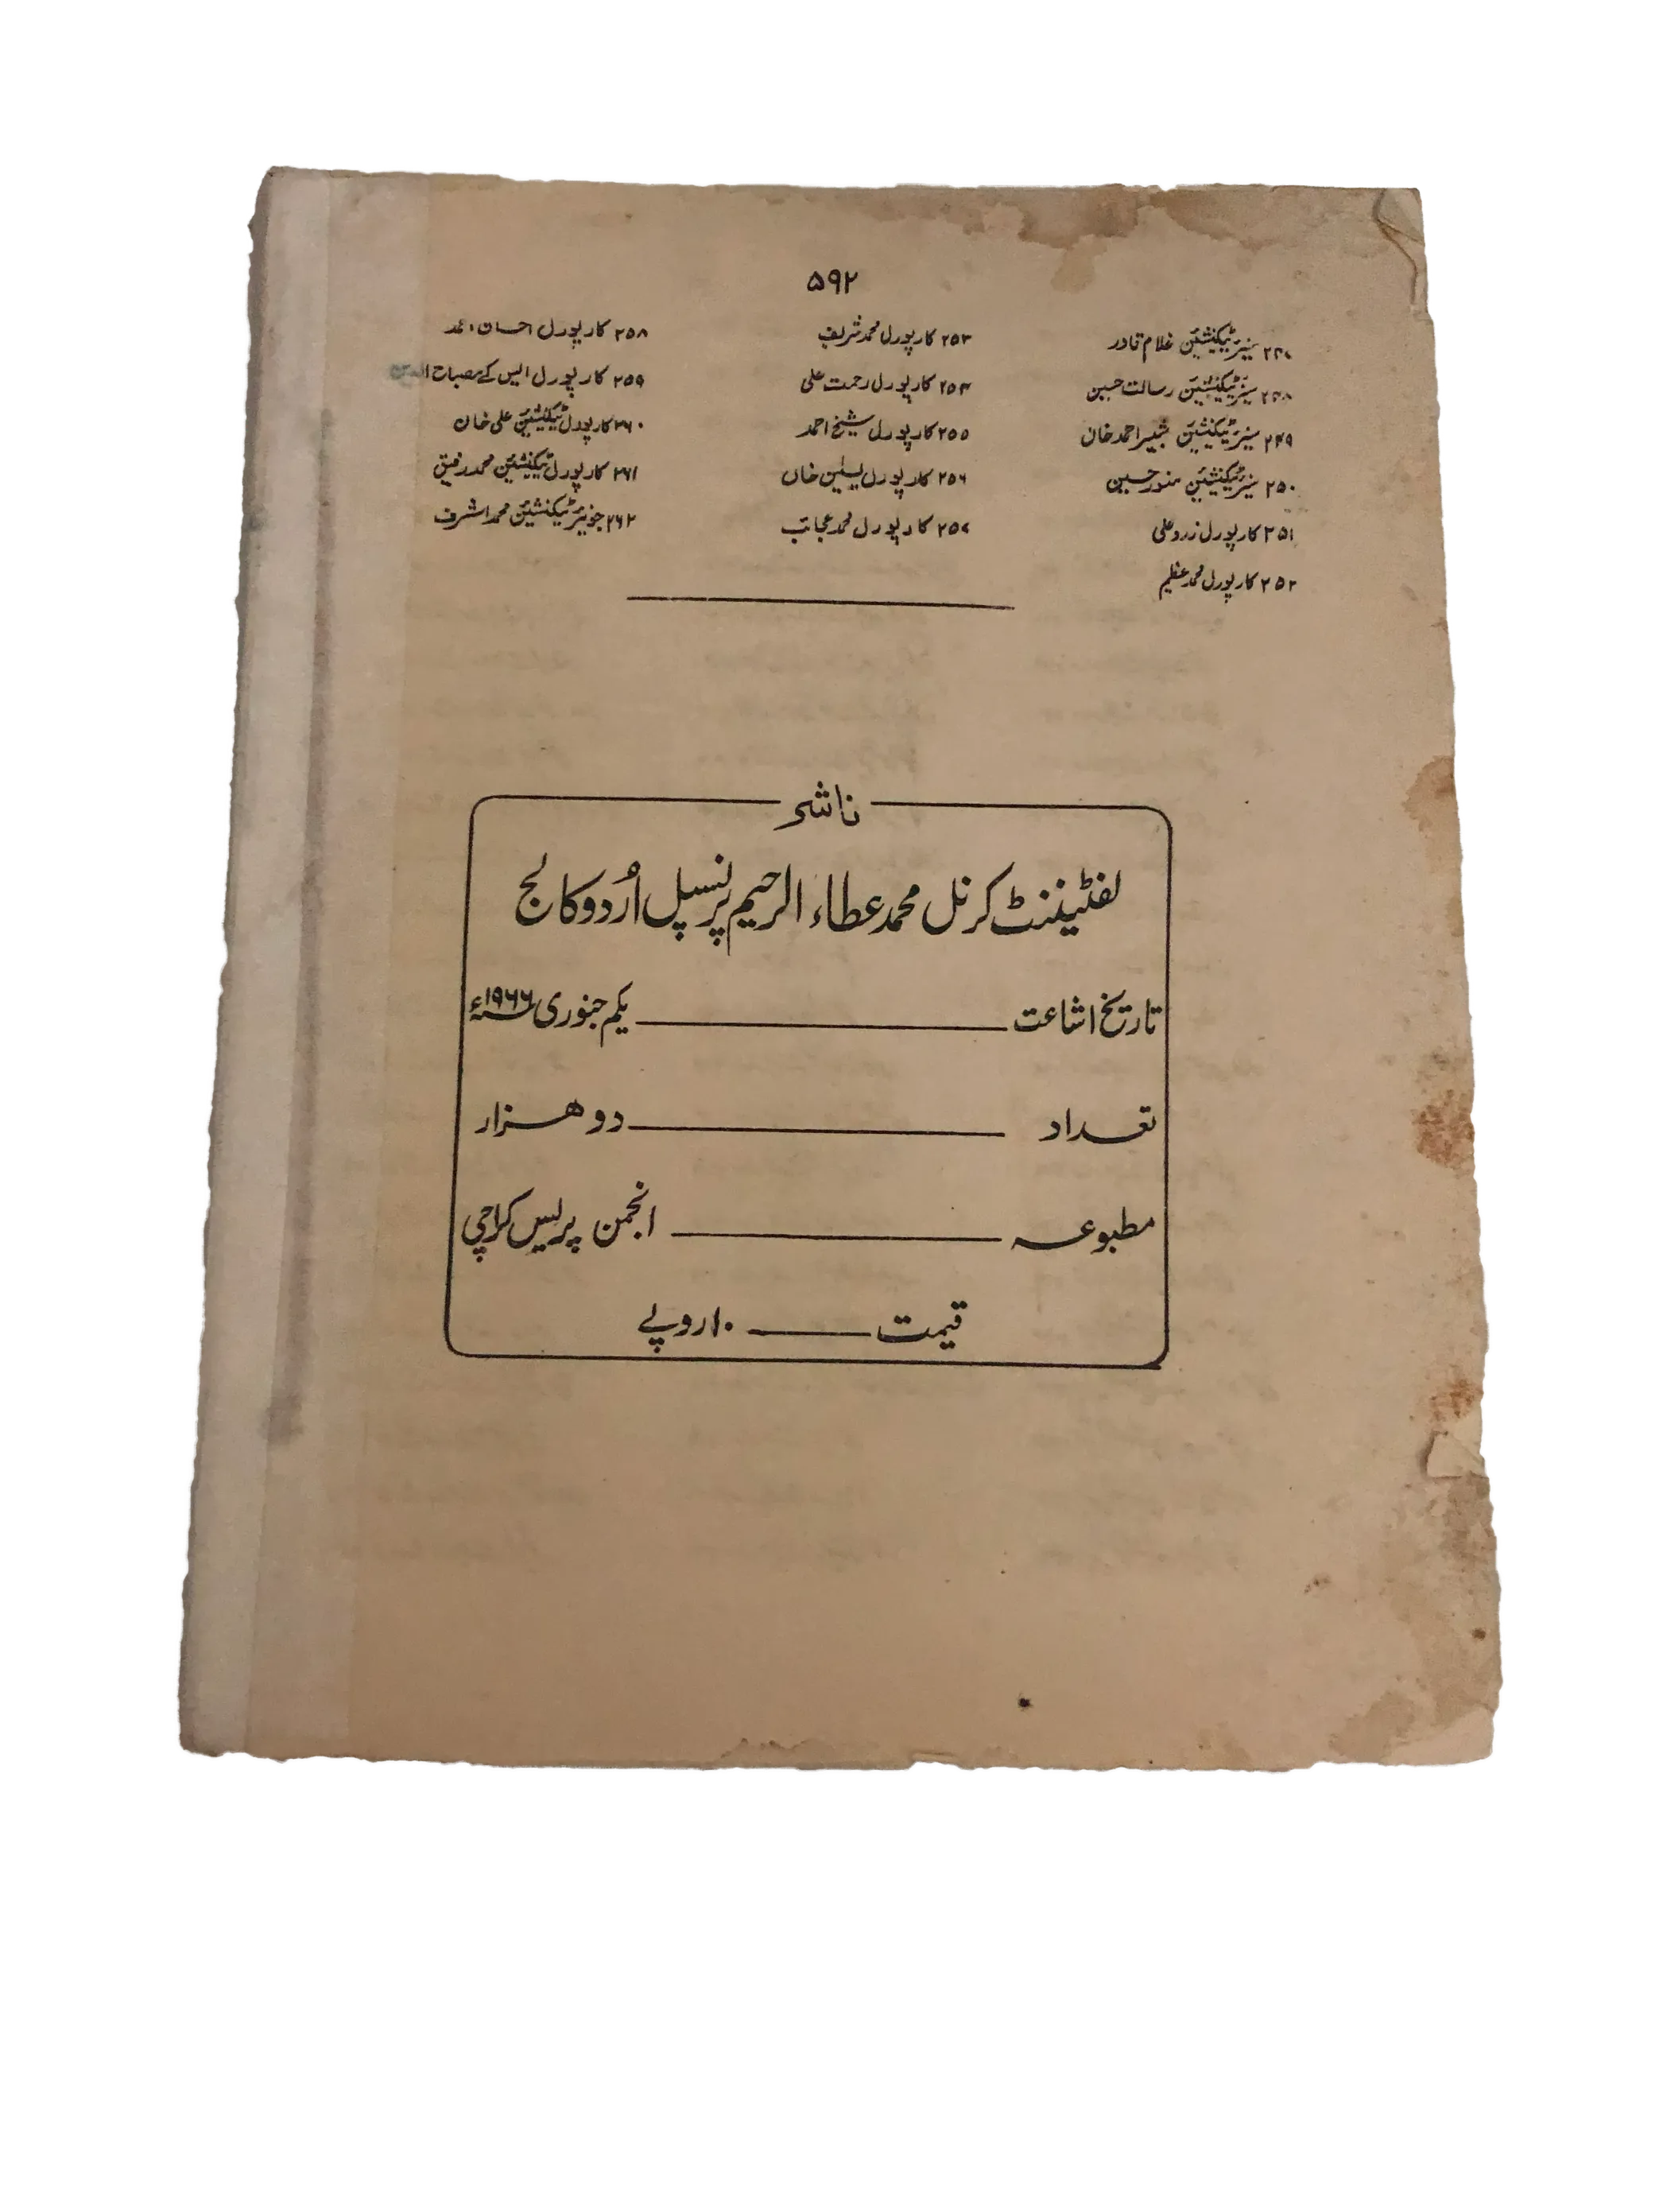 ۵۹۲
۲۴۷ سینئر ٹیکنیشین غلام قادر
۲۴۸ سینئر ٹیکنیشین رسالت حسین
۲۴۹ سینئر ٹیکنیشین شبیر احمد خان
۲۵۰ سینئر ٹیکنیشین منور حسین
۲۵۱ کارپورل زرد علی
۲۵۲ کارپورل محمد عظیم
۲۵۳ کارپورل محمد شریف
۲۵۴ کارپورل رحمت علی
۲۵۵ کارپورل شیخ احمد
۲۵۶ کارپورل یسٰین خاں
۲۵۷ کارپورل محمد عجائب
۲۵۸ کارپورل احسان احمد
۲۵۹ کارپورل ایس کے مصباح الدین
۲۶۰ کارپورل ٹیکنیشین علی خان
۲۶۱ کارپورل ٹیکنیشین محمد رفیق
۲۶۲ جونیئر ٹیکنشین محمد اشرف
ناشر
لفٹیننٹ کرنل محمد عطاء الرحیم پرنسپل اُردو کالج
تاریخ اشاعت ــــــــ یکم جنوری ۱۹۶۶ء
تعداد ــــــــ دو ہزار
مطبوعہ ــــــــ انجمن پریس کراچی
قیمت ــــــــ ۱۰ روپے